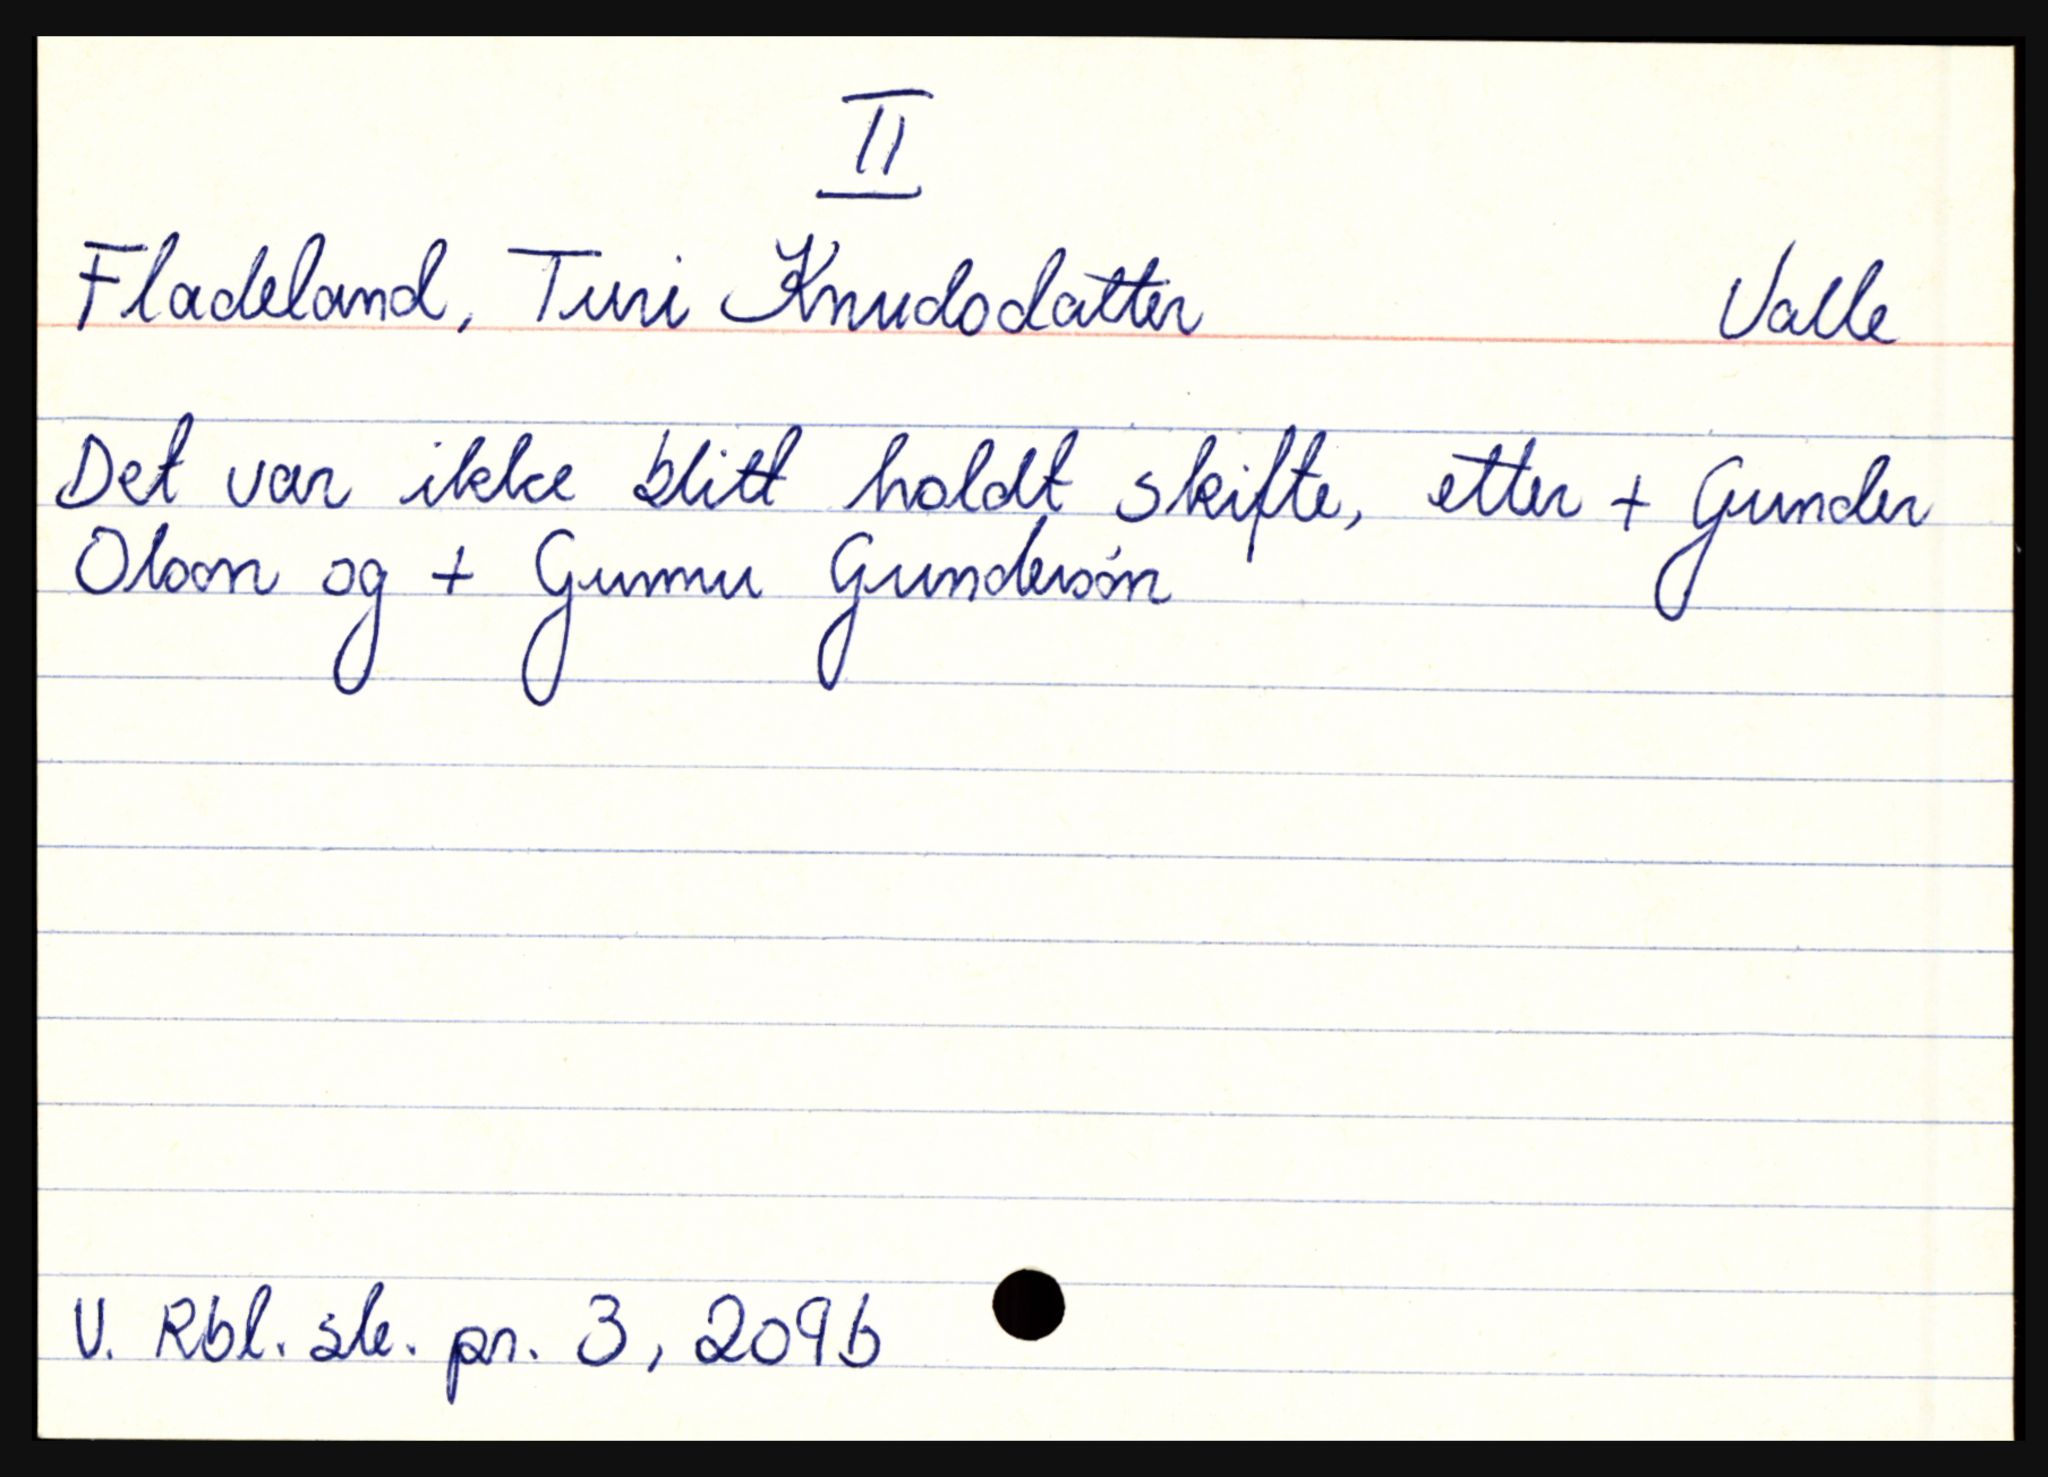 II
Fladeland, Turi Knudsdatter Valle
Det var ikke blitt holdt skifte, etter + Gunder
Olson og + Gunnu Gundersön
V. Rbl. sk. pr. 3, 209b